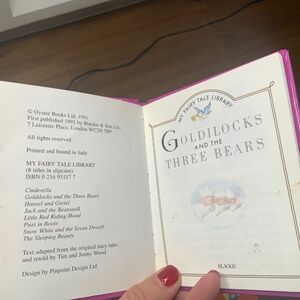 © Oyster Books Ltd, 1991
First published 1991 by Blackie & Son Ltd.,
7 Leicester Place, London WC2H 7BP
All rights reserved
Printed and bound in Italy
MY FAIRY TALE LIBRARY
(8 titles in slipcase)
ISBN 0 216 93117 7
Cinderella
Goldilocks and the Three Bears
Hansel and Gretel
Jack and the Beanstalk
Little Red Riding Hood
Puss in Boots
Snow White and the Seven Dwarfs
The Sleeping Beauty
Text adapted from the original fairy tales
and retold by Tim and Jenny Wood
Design by Pinpoint Design Ltd
MY FAIRY TALE LIBRARY
GOLDILOCKS
AND THE
THREE BEARS
BLACKIE